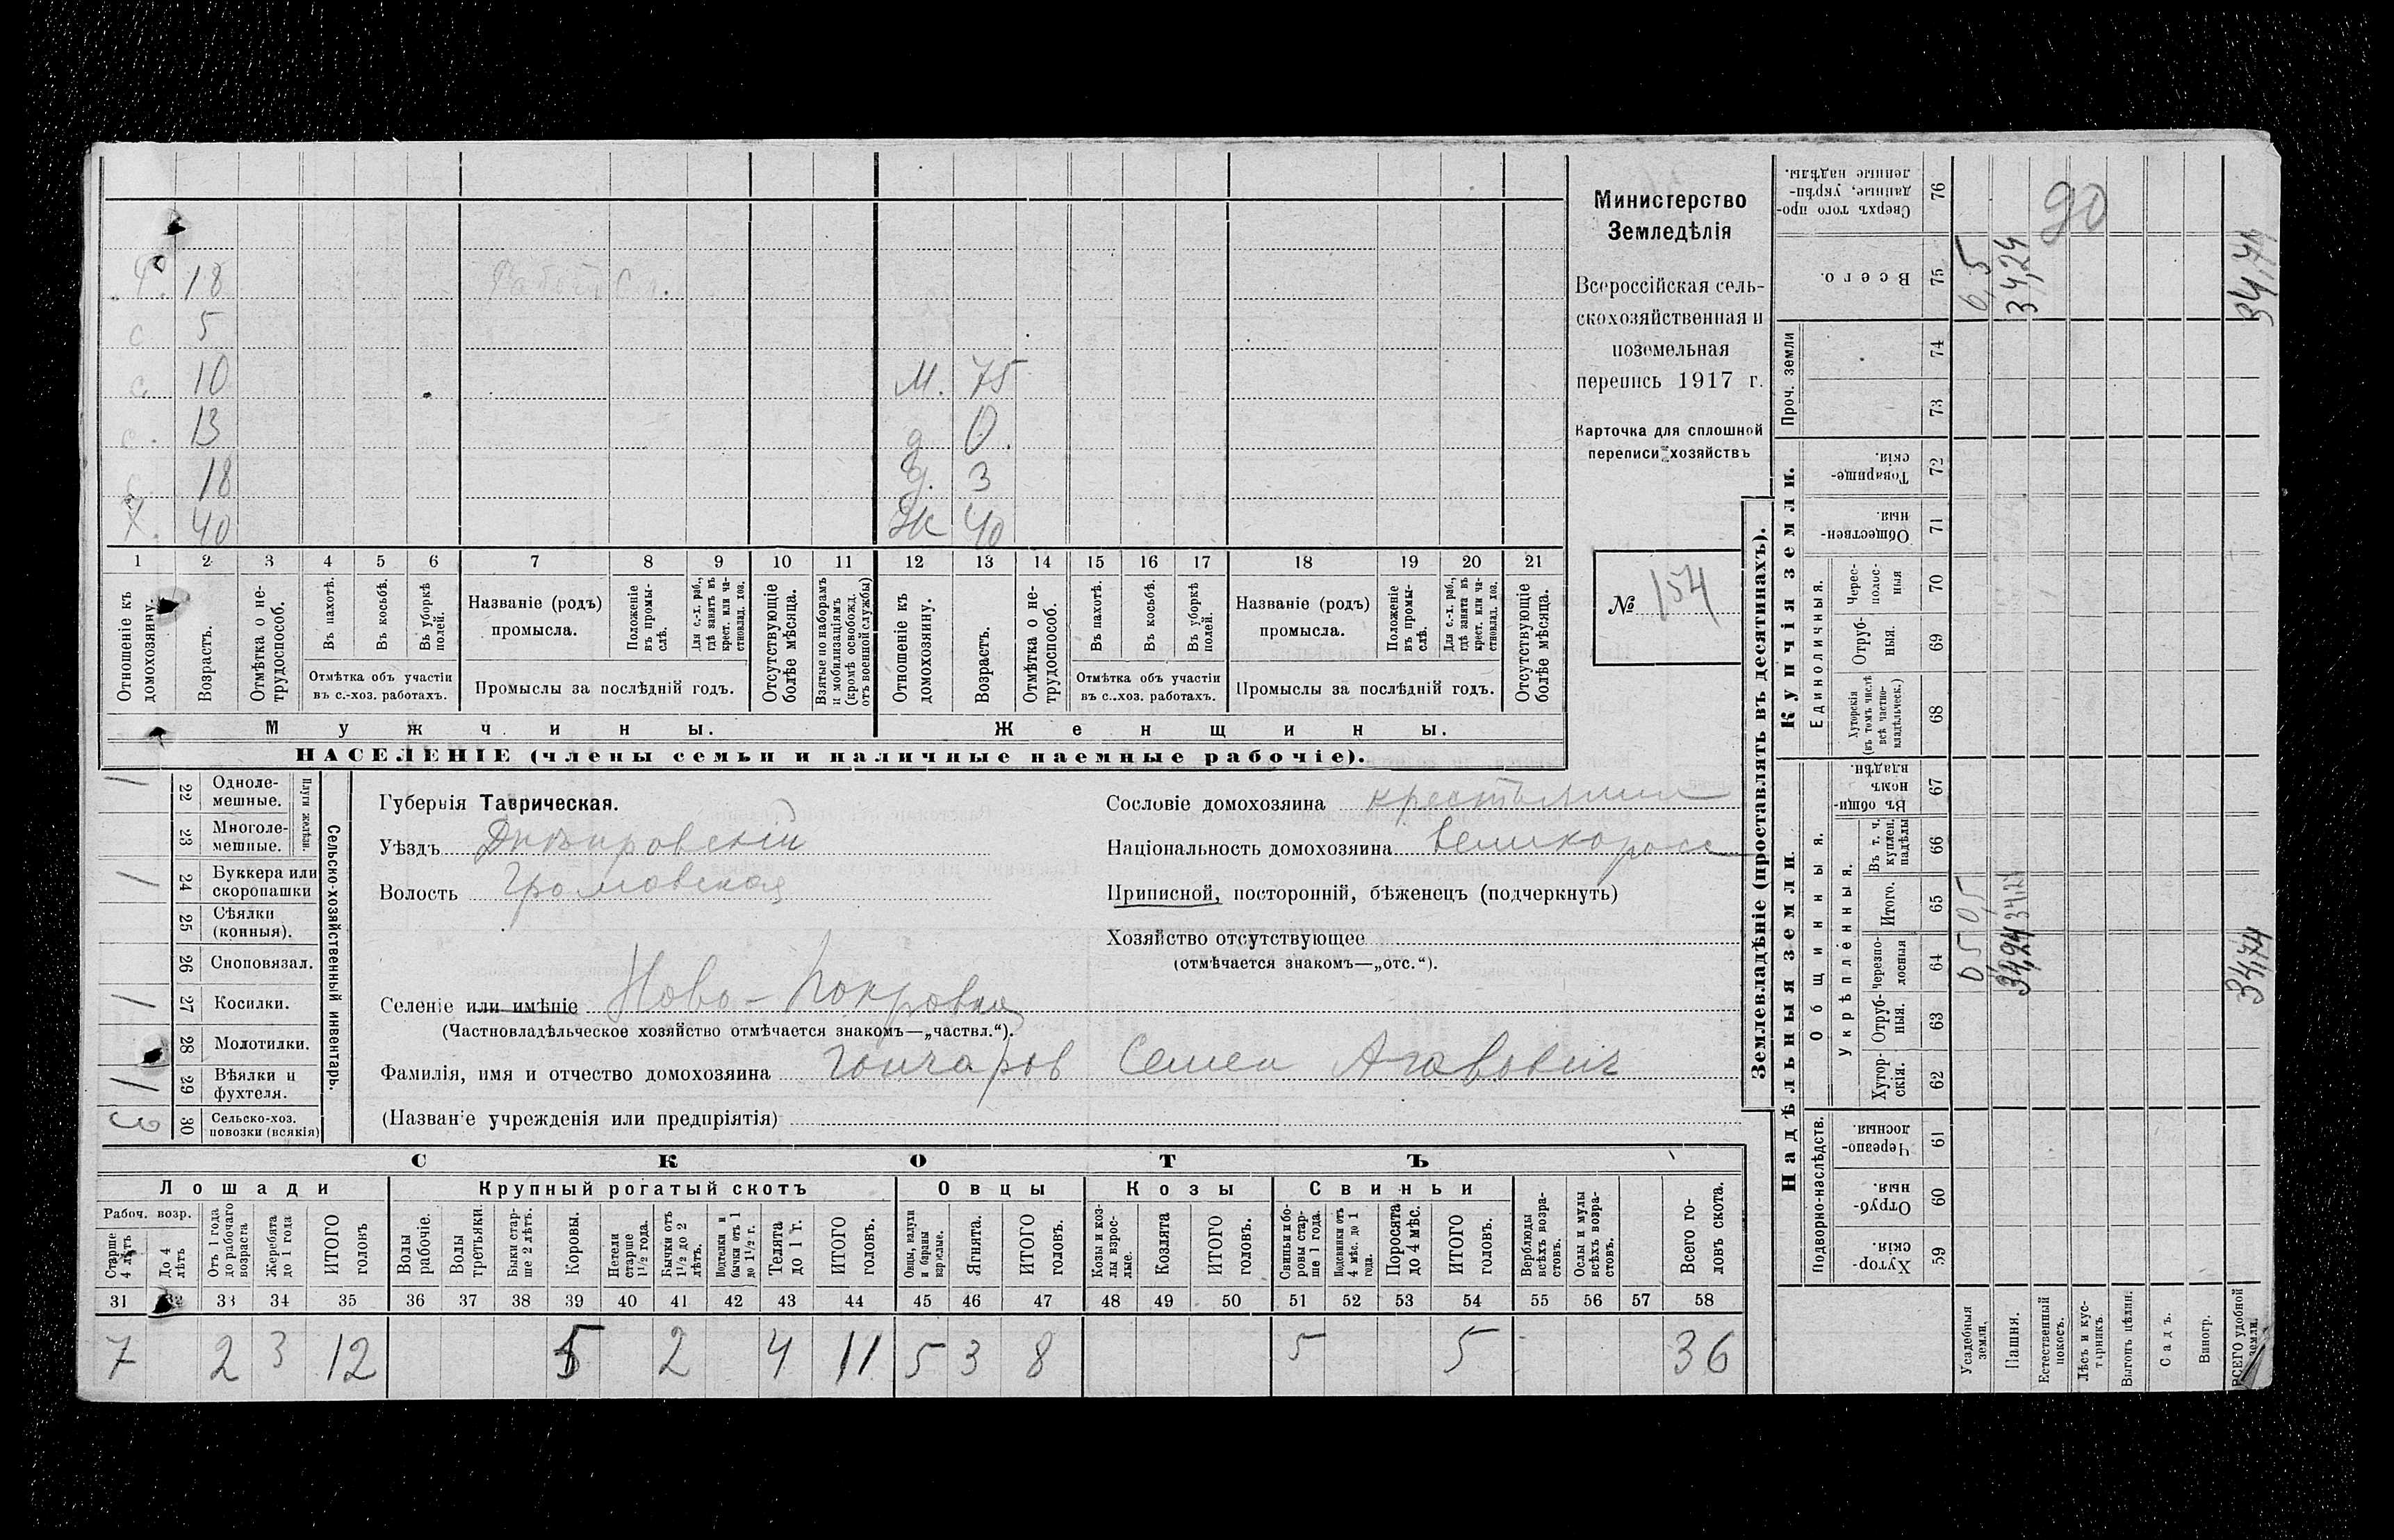 Министерство
Земледѣлія
Всероссійская сель-
скохозяйственная и
поземельная
перепись 1917 г.
Карточка для сплошной
переписи хозяйствъ
№ 154
18 Работн.
с 5
с. 10 М. 75
с. 13 д 0.
18 д. 3
Х. 40 Ж 40
1 2 3 4 5 6 7 8 9 10 11 12 13 14 15 16 17 18 19 20 21
Отношеніе къ домохозяину.
Возрастъ.
Отмѣтка о не-трудоспособ.
Въ пахотѣ.
Въ косьбѣ.
Въ уборкѣ полей.
Отмѣтка объ участіи
въ с.-хоз. работахъ.
Названіе (родъ)
промысла.
Положеніе въ промы-слѣ.
Для с.-х. раб., гдѣ занятъ въ крест. или ча-стновлад. хоз.
Промыслы за послѣдній годъ.
Отсутствующіе болѣе мѣсяца.
Взятые по наборамъ и мобилизаціямъ (кромѣ освобожд. отъ военной службы)
Отношеніе къ домохозяину.
Возрастъ.
Отмѣтка о не-трудоспособ.
Въ пахотѣ.
Въ косьбѣ.
Въ уборкѣ полей.
Отмѣтка объ участіи
въ с.-хоз. работахъ.
Названіе (родъ)
промысла.
Положеніе въ промы-слѣ.
Для с.-х. раб., гдѣ занята въ крест. или ча-стновлад. хоз.
Промыслы за послѣдній годъ.
Отсутствующіе болѣе мѣсяца.
Мужчины. Женщины.
НАСЕЛЕНІЕ (члены семьи и наличные наемные рабочіе).
Сельско-хозяйственный инвентарь.
Плуги желѣзн.
1 22 Одноле-мешные.
23 Многоле-мешные.
1 24 Буккера или скоропашки
25 Сѣялки (конныя).
26 Сноповязал.
1 27 Косилки.
28 Молотилки.
1 29 Вѣялки и фухтеля.
3 30 Сельско-хоз. повозки (всякія)
Губернія Таврическая.
Уѣздъ Днѣпровскій
Волость Громовская
Селеніе или имѣніе Ново-Покровка
(Частновладѣльческое хозяйство отмѣчается знакомъ—„частвл.“).
Фамилія, имя и отчество домохозяина Гончаров Семен Агавович
(Названіе учрежденія или предпріятія)
Сословіе домохозяина крестьянин
Національность домохозяина великоросс
Приписной, посторонній, бѣженецъ (подчеркнуть)
Хозяйство отсутствующее
(отмѣчается знакомъ—„отс.“).
СКОТЪ
Лошади Крупный рогатый скотъ Овцы Козы Свиньи
Рабоч. возр.
Старше 4 лѣтъ
До 4 лѣтъ
Отъ 1 года до рабочаго возраста
Жеребята до 1 года
ИТОГО головъ
Волы рабочіе.
Волы третьяки.
Быки стар-ше 2 лѣтъ.
Коровы.
Нетели старше 1½ года.
Бычки отъ 1½ до 2 лѣтъ.
Подтелки и бычки отъ 1 до 1½ г.
Телята до 1 г.
ИТОГО головъ.
Овцы, валухи и бараны взрослые.
Ягнята.
ИТОГО головъ.
Козы и коз-лы взрос-лые.
Козлята
ИТОГО головъ.
Свиньи и бо-ровы стар-ше 1 года.
Подсвинки отъ 4 мѣс. до 1 года.
Поросята до 4 мѣс.
ИТОГО головъ.
Верблюды всѣхъ возра-стовъ.
Ослы и мулы всѣхъ возра-стовъ.
Всего го-ловъ скота.
31 32 33 34 35 36 37 38 39 40 41 42 43 44 45 46 47 48 49 50 51 52 53 54 55 56 57 58
7 2 3 12 5 2 4 11 5 3 8 5 5 36
Землевладѣніе (проставлять въ десятинахъ).
Надѣльныя земли.
Купчія земли.
Проч. земли
Подворно-наслѣдств.
Общинныя.
Укрѣпленныя.
Единоличныя.
Хутор-скія. 59
Отруб-ныя. 60
Черезпо-лосныя. 61
Хутор-скія. 62
Отруб-ныя. 63
Черезпо-лосныя 64
Итого. 65
Въ т. ч. куплен. надѣлы 66
Въ общи-номъ владѣн. 67
Хуторскія (въ томъ числѣ всѣ частно-владѣльческ.) 68
Отруб-ныя. 69
Черес-полос-ныя 70
Обществен-ныя. 71
Товарище-скія. 72
73
74
Всего. 75
Сверхъ того про-данные, укрѣп-ленные надѣлы. 76
Усадебныя земли. 0,5 0,5 0,5
Пашня. 34,24 34,24 34,24
Естественный покосъ.
Лѣсъ и кус-тарникъ.
Выгонъ цѣлин.
Садъ.
Виногр.
ВСЕГО удобной земли. 34,74 34,74
90